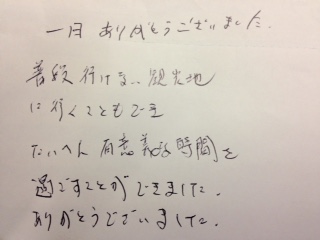 一日 ありがとうございました.
普段 行けない観光地
に行くこともでき
たいへん 有意義な時間を
過ごすことができました.
ありがとうございました.